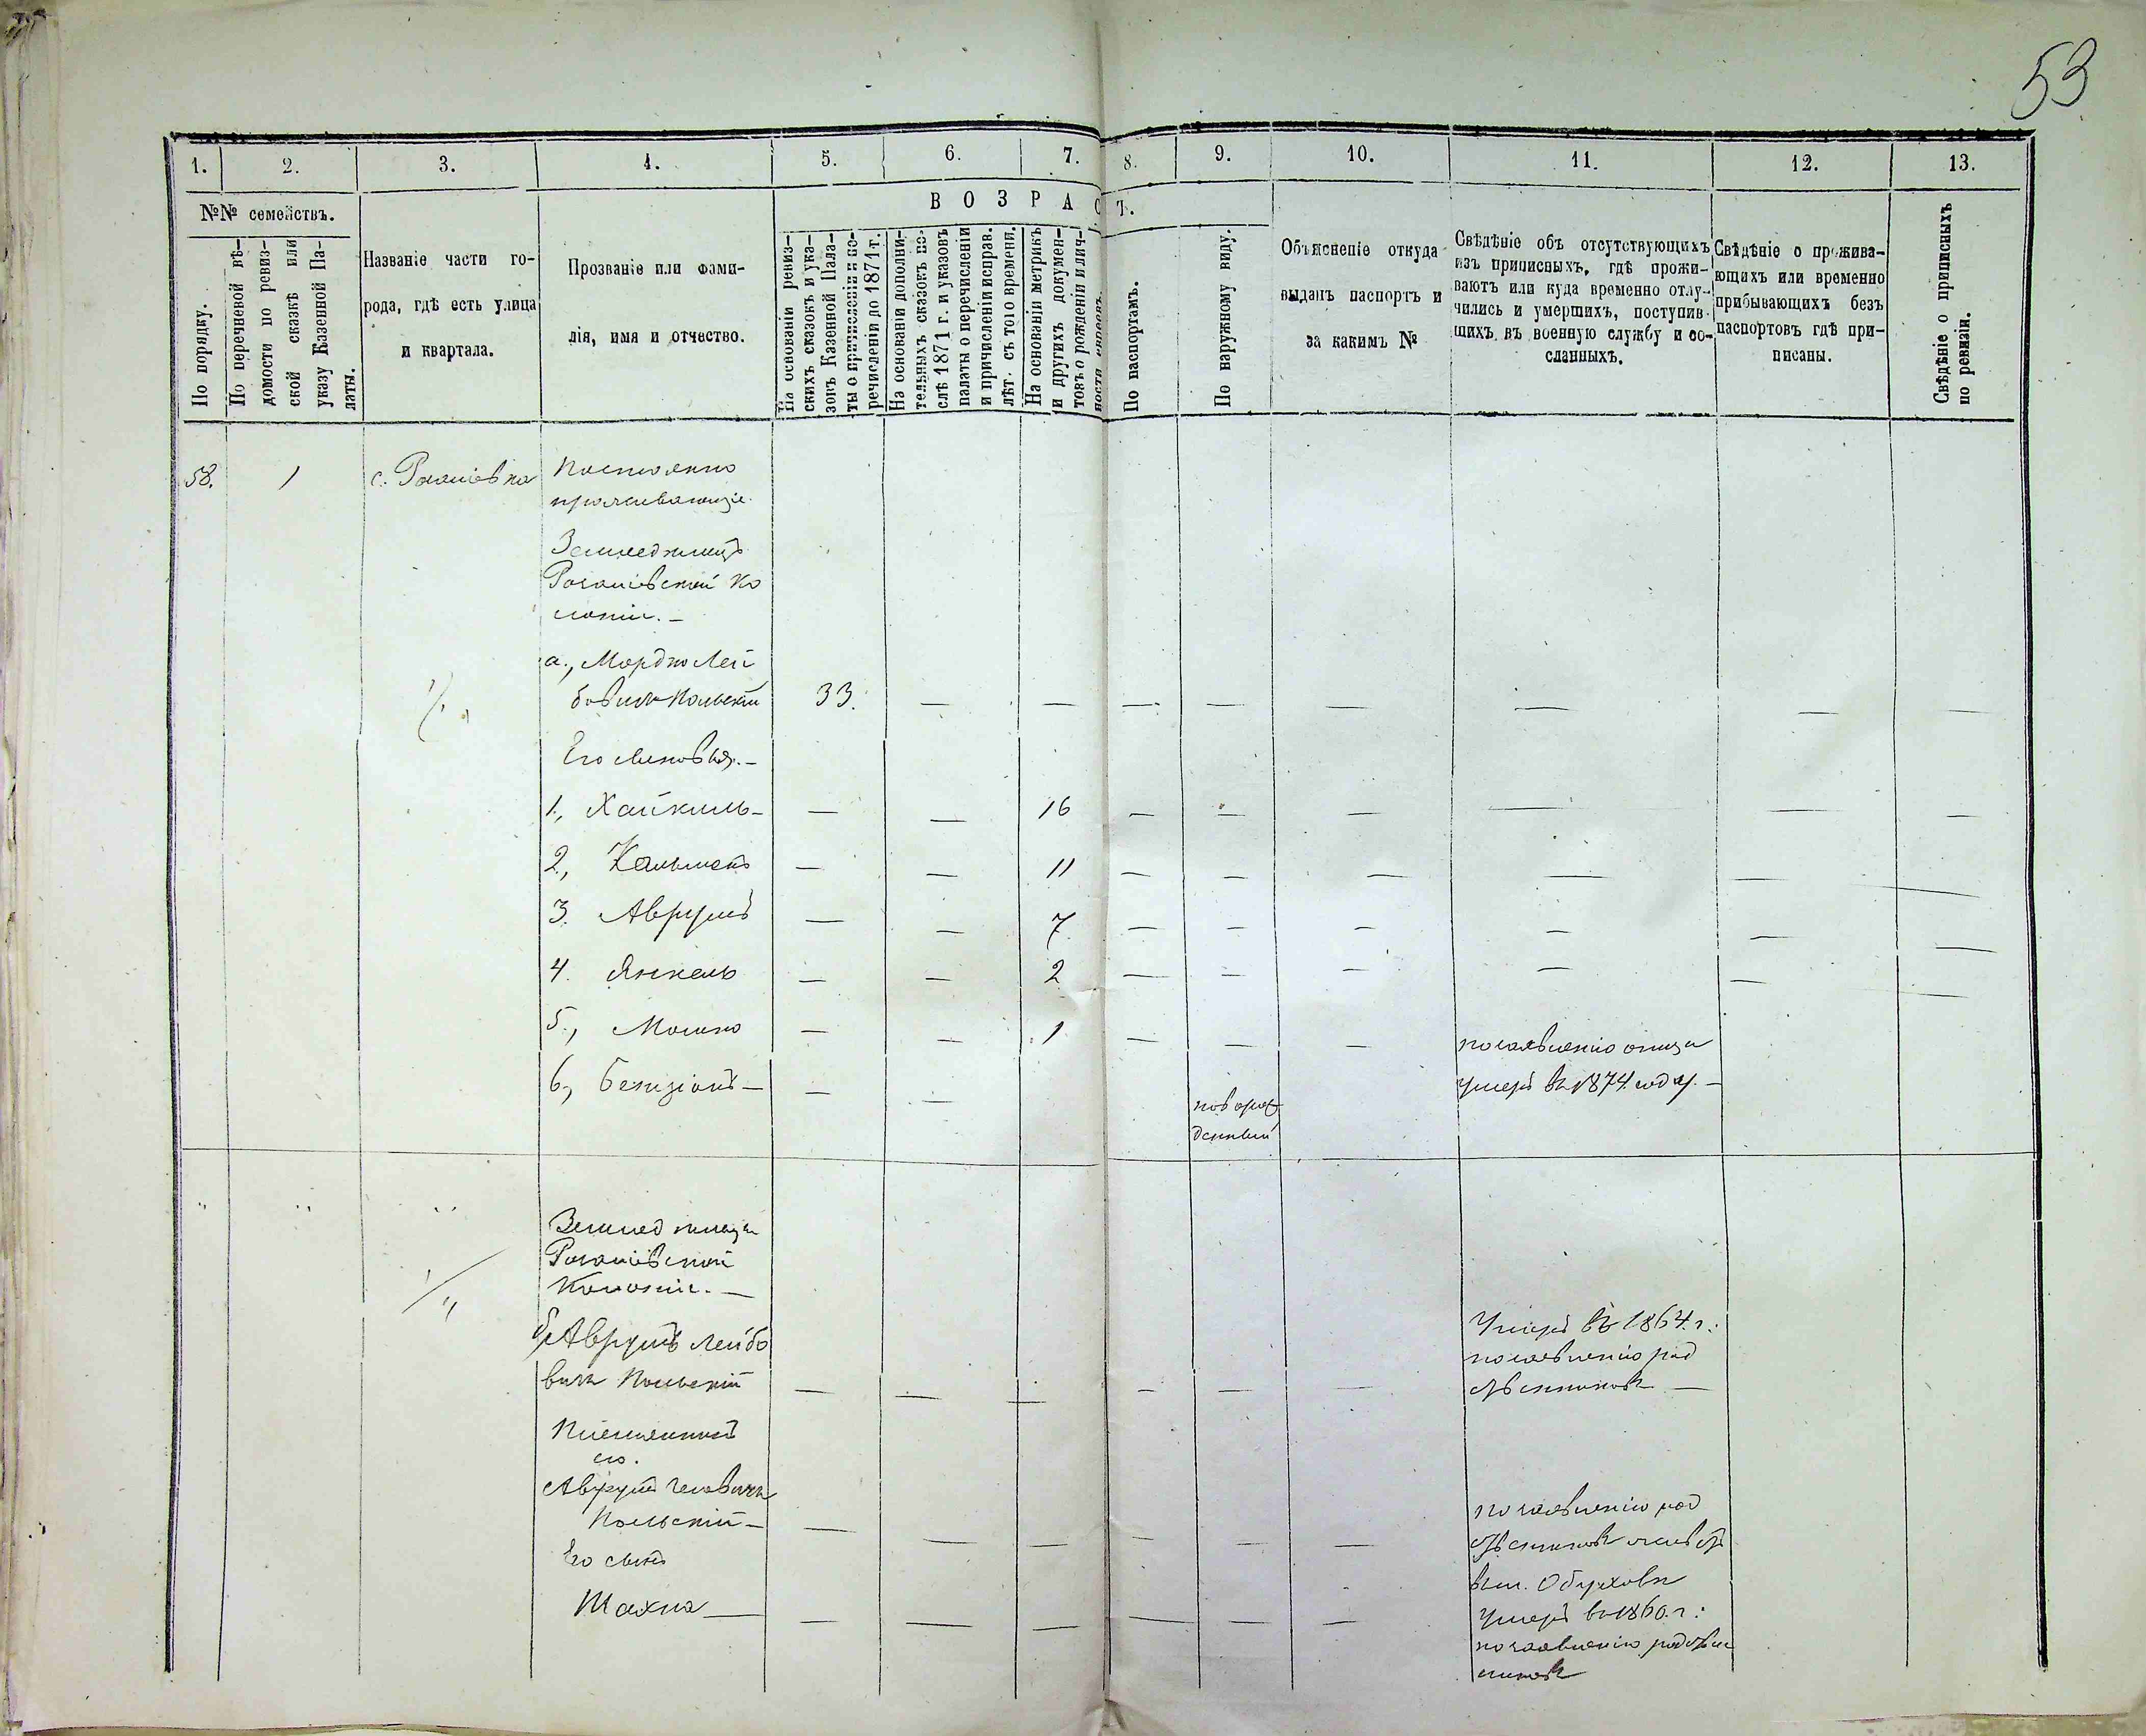 53
1. 2. 3. 4. 5. 6. 7. 8. 9. 10. 11. 12. 13.
№№ семействъ.
В О З Р А С Т Ъ.
По порядку.
По перечневой вѣ-
домости по ревиз-
ской сказкѣ или
указу Казенной Па-
латы.
Названіе части го-
рода, гдѣ есть улица
и квартала.
Прозваніе или фами-
лія, имя и отчество.
На основаніи ревиз-
скихъ сказокъ и ука-
зовъ Казенной Пала-
ты о причисленіи и пе-
речисленіи до 1871 г.
На основаніи дополни-
тельныхъ сказокъ по-
слѣ 1871 г. и указовъ
палаты о перечисленіи
и причисленіи исправ.
лѣт. съ того времени.
На основаніи метрикъ
и другихъ докумен-
товъ о рожденіи и лич-
ности
По паспортамъ.
По наружному виду.
Объясненіе откуда
выданъ паспортъ и
за какимъ №
Свѣдѣніе объ отсутствующихъ
изъ приписныхъ, гдѣ прожи-
ваютъ или куда временно отлу-
чились и умершихъ, поступив-
шихъ въ военную службу и со-
сланныхъ.
Свѣдѣніе о прожива-
ющихъ или временно
прибывающихъ безъ
паспортовъ гдѣ при-
писаны.
Свѣдѣніе о приписныхъ
по ревизіи.
58. 1 с. Рогаиовка Постоянно
проживающіе.
Земледелецъ
Ко
лоніи. —
а., Мордко Лей
бовичъ Польскій 33. — — — — — — — —
Его сыновья. —
1., Хайкиль — — — 16 — — — — —
2., Кальменъ — — 11 — — — — — —
3. Аврумъ — — 7 — — — — — —
4. Янкель — — 2 — — — — — —
5., Мошко — — 1 — — — по заявленію отца
умеръ въ 1874 году. —
6., Бенціонъ — — — новорож
денный
" " " Земледельцы
Колоніи. —
б., Аврумъ Лейбо
вичъ Польскій — — — — — — Умеръ въ 1864 г.:
по заявленію род
ственниковъ —
Племянникъ
его.
Аврумъ
Польскій — — — — — — — по заявленію род
ственниковъ живетъ
въ м. Обуховъ
Его сынъ
Шахна — — — — — — — умеръ въ 1860 г.:
по заявленію родствен
никовъ